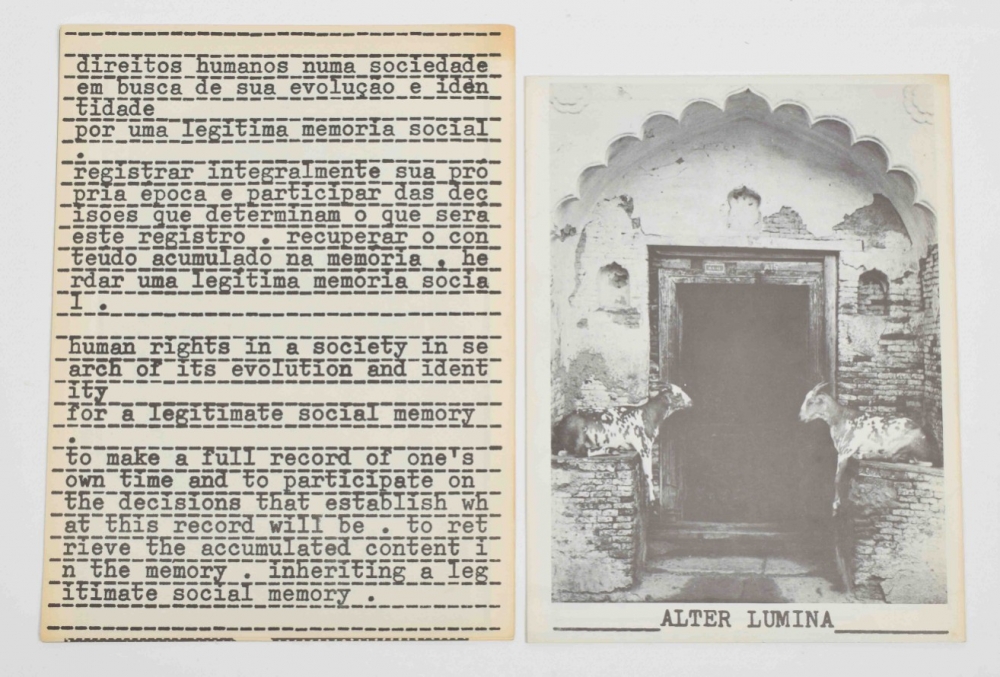 direitos humanos numa sociedade
em busca de sua evolução e iden
tidade
por uma legítima memória social
.
registrar integralmente sua pró
pria época e participar das dec
isões que determinam o que será
este registro . recuperar o con
teúdo acumulado na memória . he
rdar uma legítima memória socia
l .
human rights in a society in se
arch of its evolution and ident
ity
for a legitimate social memory
.
to make a full record of one's
own time and to participate on
the decisions that establish wh
at this record will be . to ret
rieve the accumulated content i
n the memory . inheriting a leg
itimate social memory .
ALTER LUMINA